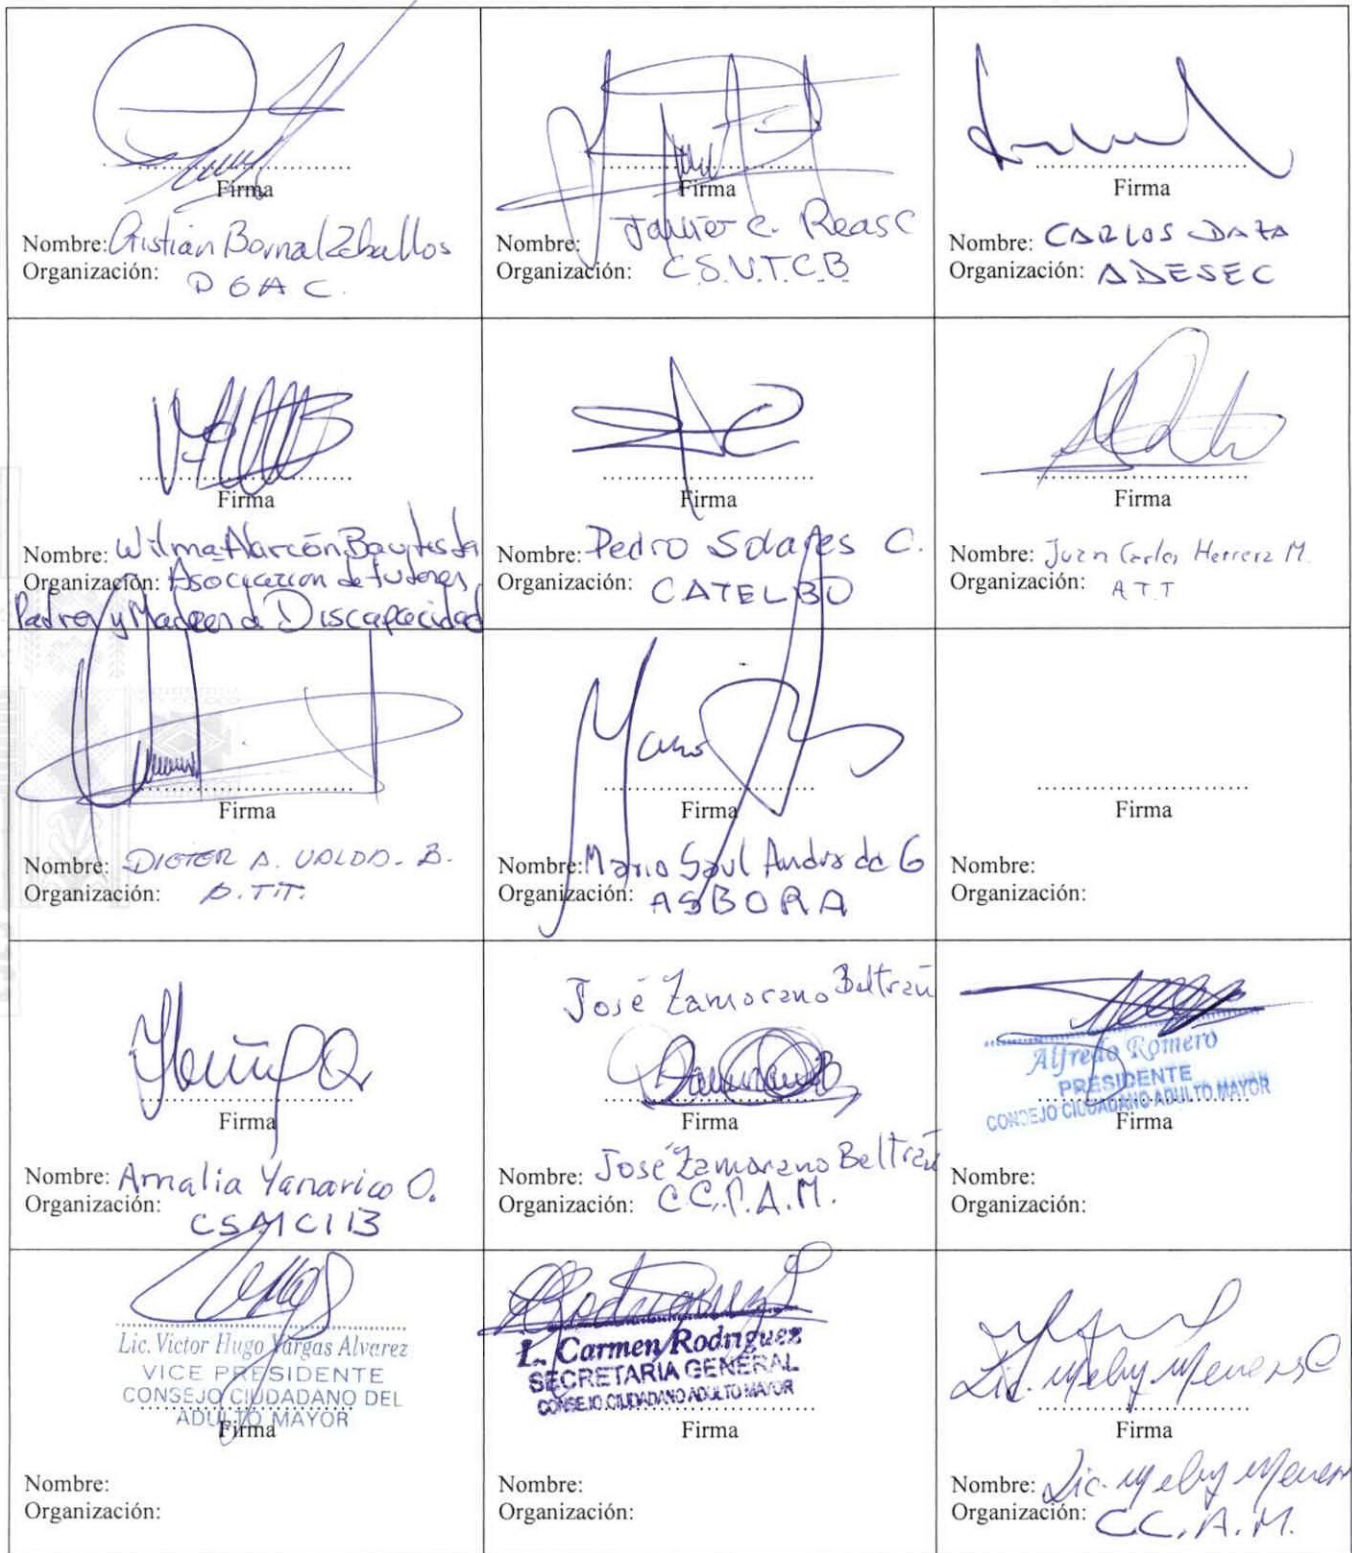 Firma
Nombre: Cristian Bernal Zeballos
Organización: DGAC.
Firma
Nombre: Javier C. Reas C
Organización: C.S.U.T.C.B
Firma
Nombre: CARLOS DAZA
Organización: ADESEC
Firma
Nombre: Wilma Alarcón Bautista
Organización: Asociación de tutores,
Padres y Madres de Discapacidad
Firma
Nombre: Pedro Solares C.
Organización: CATELBO
Firma
Nombre: Juan Carlos Herrera M.
Organización: A.T.T
Firma
Nombre: DIETER A. B.
Organización:
Firma
Nombre: Mario Saul Andrade G
Organización: ASBORA
Firma
Nombre:
Organización:
Firma
Nombre: Amalia Yanarico O.
Organización: CSMCIB
José Zamorano Beltrán
Firma
Nombre: José Zamorano Beltrán
Organización: C.C.P.A.M.
Alfredo Romero
PRESIDENTE
CONSEJO CIUDADANO ADULTO MAYOR
Firma
Nombre:
Organización:
Lic. Victor Hugo Vargas Alvarez
VICE PRESIDENTE
CONSEJO CIUDADANO DEL
ADULTO MAYOR
Firma
Nombre:
Organización:
L. Carmen Rodriguez
SECRETARIA GENERAL
CONSEJO CIUDADANO ADULTO MAYOR
Firma
Nombre:
Organización:
Lic.
Firma
Nombre: Lic.
Organización: C.C.A.M.